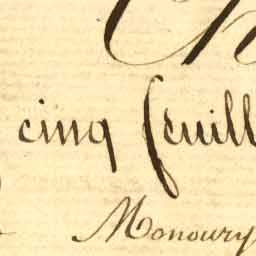 cinq feuill
Monoury